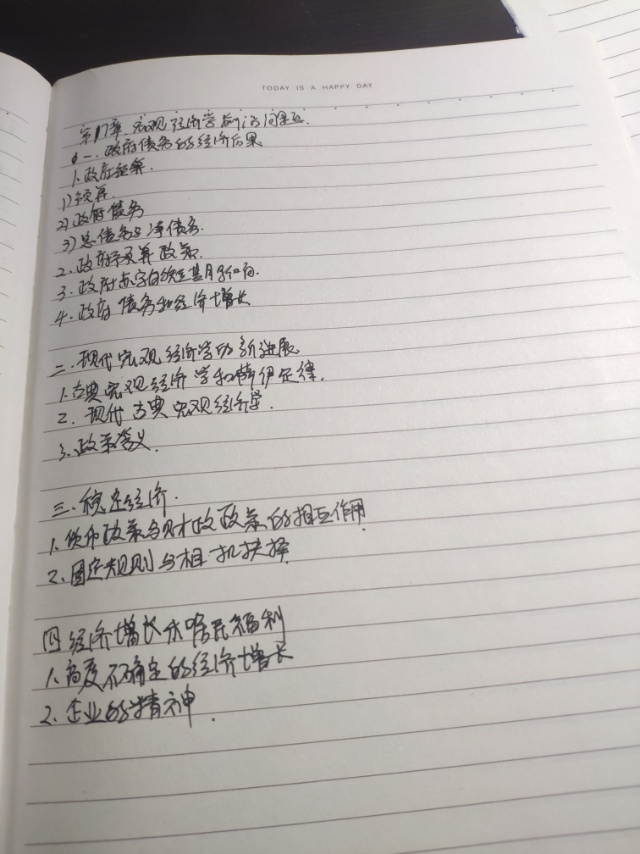 TODAY IS A HAPPY DAY
第17章 宏观经济学前沿问题
一、政府债务的经济后果
1、政府预算.
1)预算.
2)政府债务
3)总债务与净债务.
2、政府预算政策.
3、政府赤字的短期影响.
4、政府债务和经济增长
二、现代宏观经济学的新进展
1、古典宏观经济学和萨伊定律.
2、现代古典宏观经济学.
3、政策含义.
三、稳定经济.
1、货币政策与财政政策的相互作用
2、固定规则与相机抉择
四 经济增长和居民福利
1、高度不确定的经济增长
2、企业的精神.